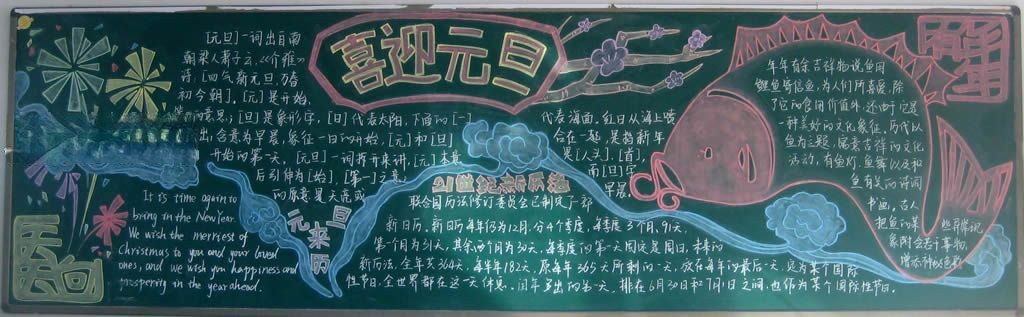 喜迎元旦
[元旦]一词出自南
朝梁人萧子云《介雅》
诗：[四气新元旦，万春
初今朝]。[元]是开始,
的意思；[旦]是象形字，[日]代表太阳，下面的[一]
出，含意为早晨，象征一日的开始，[元]和[旦]
开始的第一天。[元旦]一词拆开来讲，[元]本意
后引伸为[始]，[第一]之意，
的原意是天亮或
代表海面，红日从海上喷
合在一起，是指新年
是[人头]，[首]，
而[旦]字
早晨。
元旦
来历
It is time again to
bring in the New Year.
We wish the merriest of
Christmas to you and your loved
ones, and we wish you happiness and
prosperity in the year ahead.
21世纪新历法
联合国历法修订委员会已制定了一部
新日历。新日历每年仍为12月，分4个季度，每季度3个月，91天。
第一个月为31天，其余两个月为30天，每季度的第一天固定是周日，未来的
新历法，全年共364天，每半年182天，原每年365天所剩的一天，放在每年的最后一天，定为某个国际
性节日，全世界都在这一天休息。闰年多出的第一天，排在6月30日和7月1日之间，也作为某个国际性节日。
年年有余
年年有余吉祥物说鱼用
鲤鱼等怪鱼，为人们所喜爱，除
了它的食用价值外，还由于它是
一种美好的文化象征，历代以
鱼为主题，寓意吉祥的文化
活动，有鱼灯，鱼舞以及和
鱼有关的诗词
书画，古人
把鱼的某些异常现
象附会志于事物
增添神秘色彩